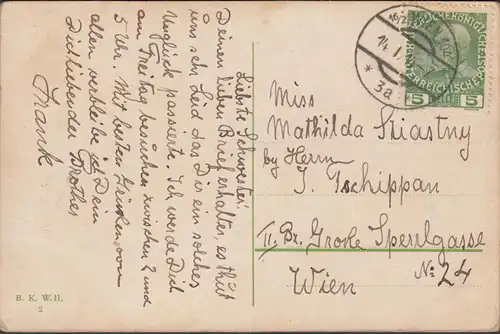 Liebste Schwester!
Deinen lieben Brief erhalten, es thut
uns sehr Leid das Dir ein solches
Unglück passierte. Ich werde Dich
am Freitag besuchen zwischen 2 und
5 Uhr. Mit besten Grüßen von
allen verbleibe ich Dein
Dichliebender Brother
Franck
B. K. W. II.
2
Miss
Mathilda Stiastny
by Herrn
J. Tschippan
II. Br. Große Sperrlgasse
No: 24
Wien
WIEN
14. I
* 3a *
5 5